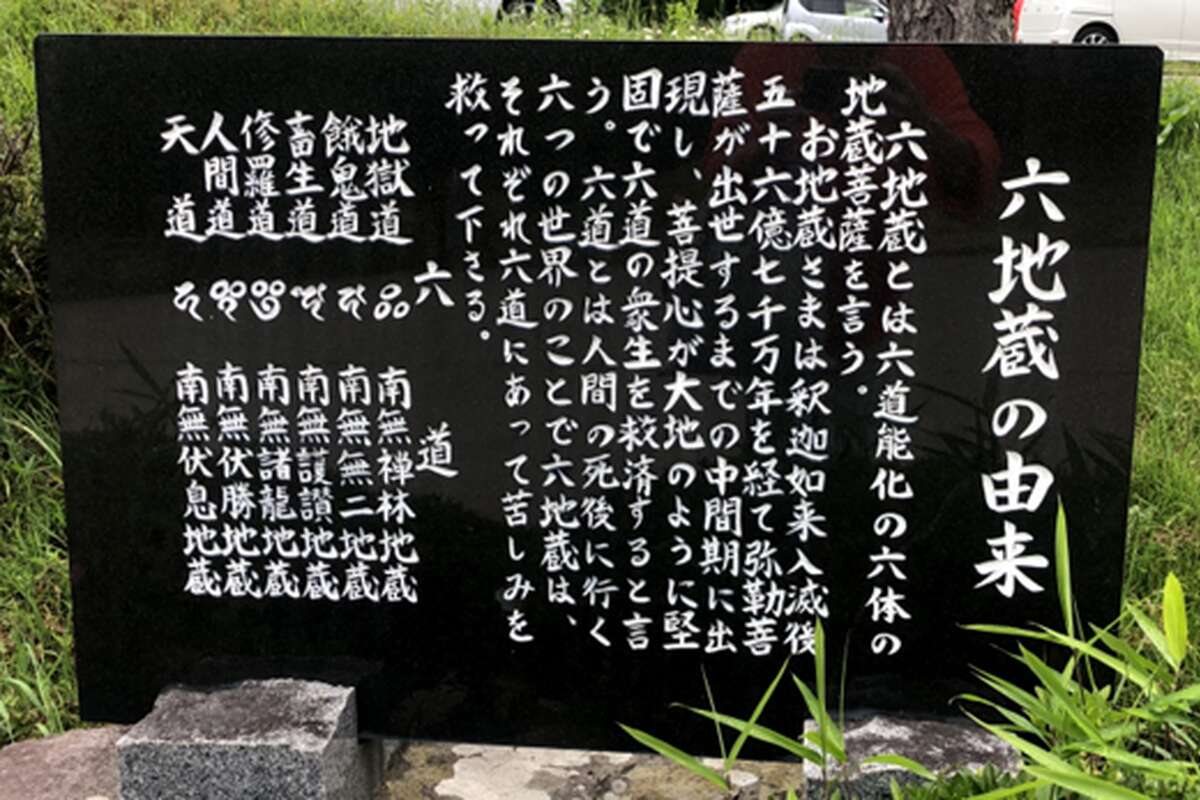 六地蔵の由来
六地蔵とは六道能化の六体の
地蔵菩薩を言う。
お地蔵さまは釈迦如来入滅後
五十六億七千万年を経て弥勒菩
薩が出世するまでの中間期に出
現し、菩提心が大地のように堅
固で六道の衆生を救済すると言
う。六道とは人間の死後に行く
六つの世界のことで六地蔵は、
それぞれ六道にあって苦しみを
救って下さる。
六道
地獄道 南無禅林地蔵
餓鬼道 南無無二地蔵
畜生道 南無護讃地蔵
修羅道 南無諸龍地蔵
人間道 南無伏勝地蔵
天道 南無伏息地蔵